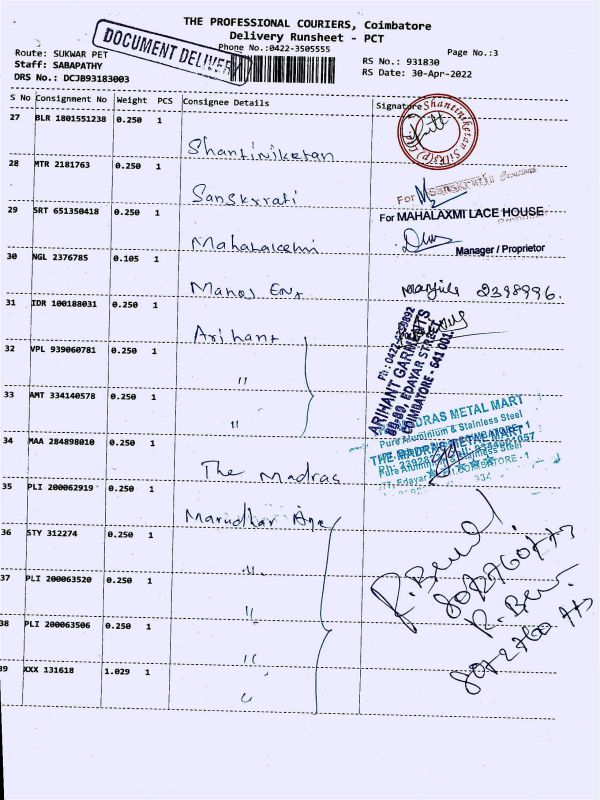 THE PROFESSIONAL COURIERS, Coimbatore
Delivery Runsheet - PCT
DOCUMENT DELIVERY
Phone No.:0422-3505555
Page No.:3
Route: SUKWAR PET
RS No.: 931830
Staff: SABAPATHY
RS Date: 30-Apr-2022
DRS No.: DCJB93183003
S No Consignment No Weight PCS Consignee Details Signature
27 BLR 1801551238 0.250 1
Shantiniketan
Shantiniketan Silks (P) Ltd
28 MTR 2181763 0.250 1
Sanskrati
For Sanskrati Creations
29 SRT 651350418 0.250 1
Mahalakshmi
For MAHALAXMI LACE HOUSE
Manager / Proprietor
30 NGL 2376785 0.105 1
Manoj Ent
2398996.
31 IDR 100188031 0.250 1
Arihant
Ph: 0422-
ARIHANT GARMENTS
88-89, EDAYAR STREET
COIMBATORE - 641 001.
32 VPL 939060781 0.250 1
"
33 AMT 334140578 0.250 1
"
34 MAA 284898010 0.250 1
The Madras
MADRAS METAL MART
Pure Aluminium & Stainless Steel
THE MADRAS METAL MART
Pure Aluminium & Stainless Steel
77, Edayar COIMBATORE - 1
35 PLI 200062919 0.250 1
Marudhar Age
36 STY 312274 0.250 1
"
37 PLI 200063520 0.250 1
"
38 PLI 200063506 0.250 1
"
39 XXX 131618 1.029 1
"